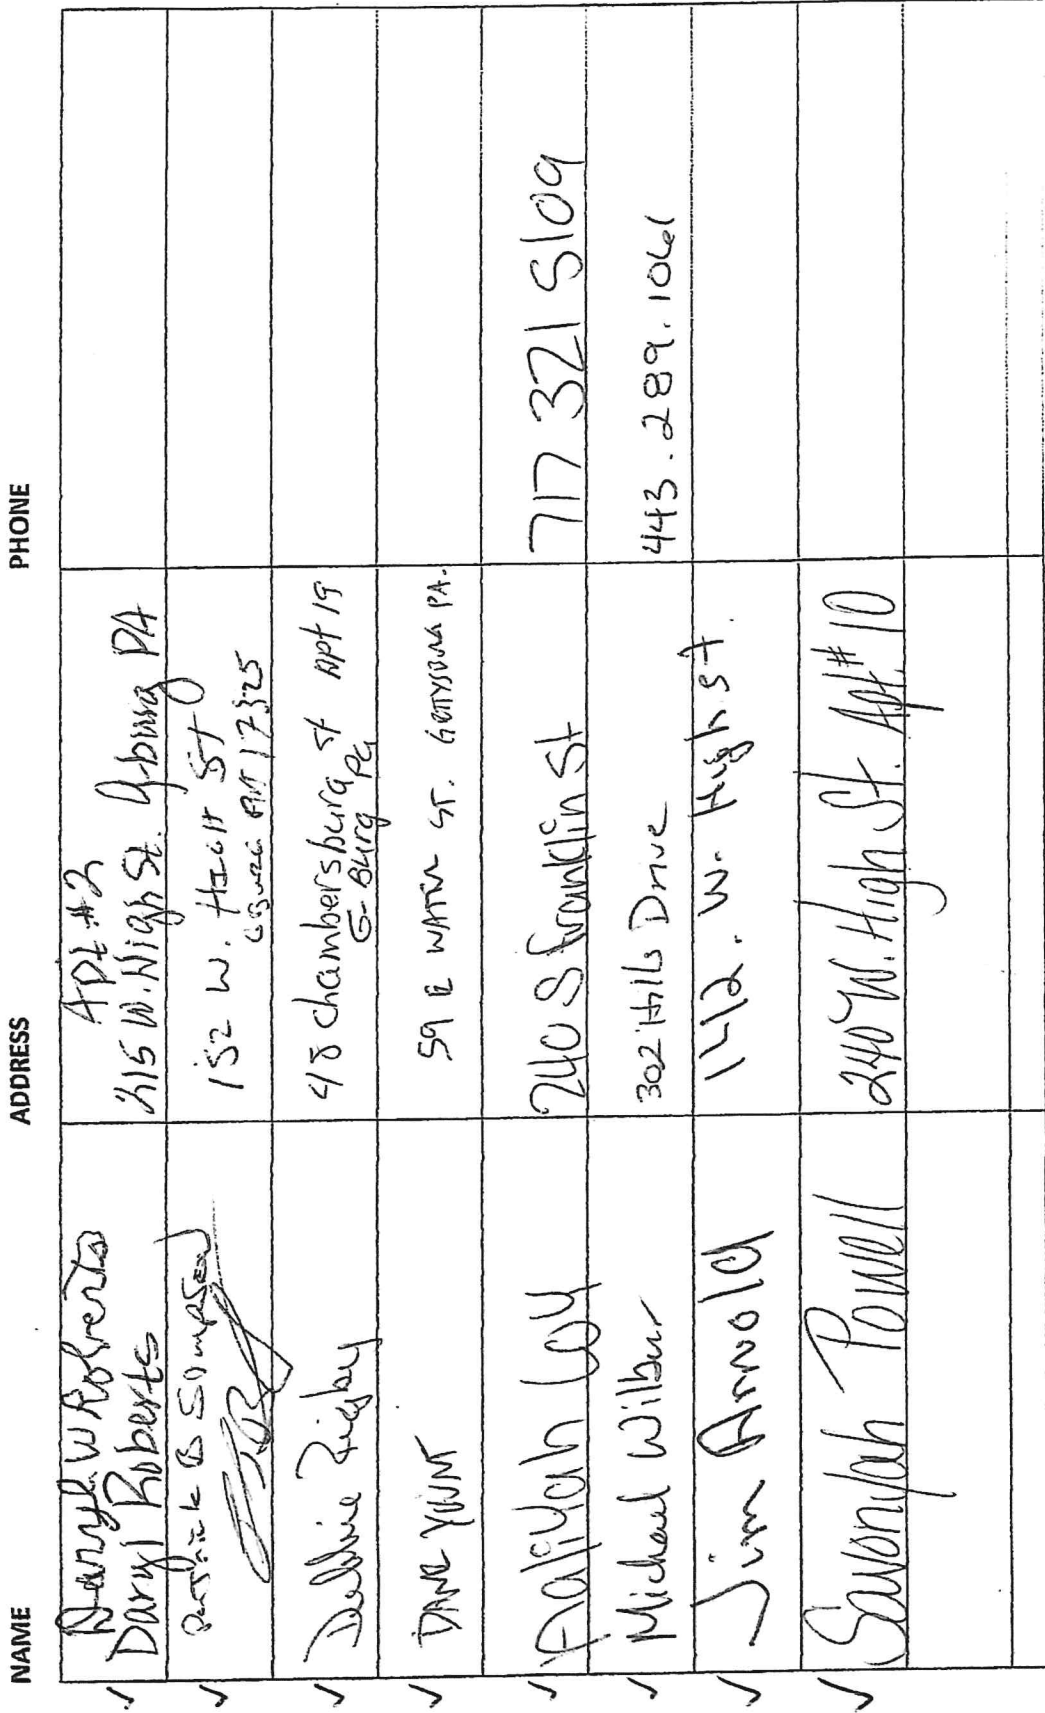 NAME ADDRESS PHONE
✓ Daryl W Roberts Apt #2
Daryl Roberts 215 W. High St. G-burg PA
✓ Patrick B Simpson 152 W. HIGH St
PA 17325
✓ Debbie Rigby 48 Chambersburg St Apt 19
G-Burg Pa
✓ DANE YOUNT 59 E WATER ST. GETTYSBURG PA.
✓ Aaliyah Loy 240 S Franklin St 717 321 5109
✓ Michael Wilbur 302 Hills Drive 443.289.1061
✓ Jim Arnold 142. W. High. St.
✓ Savonyah Powell 240 W. High St. Apt. #10